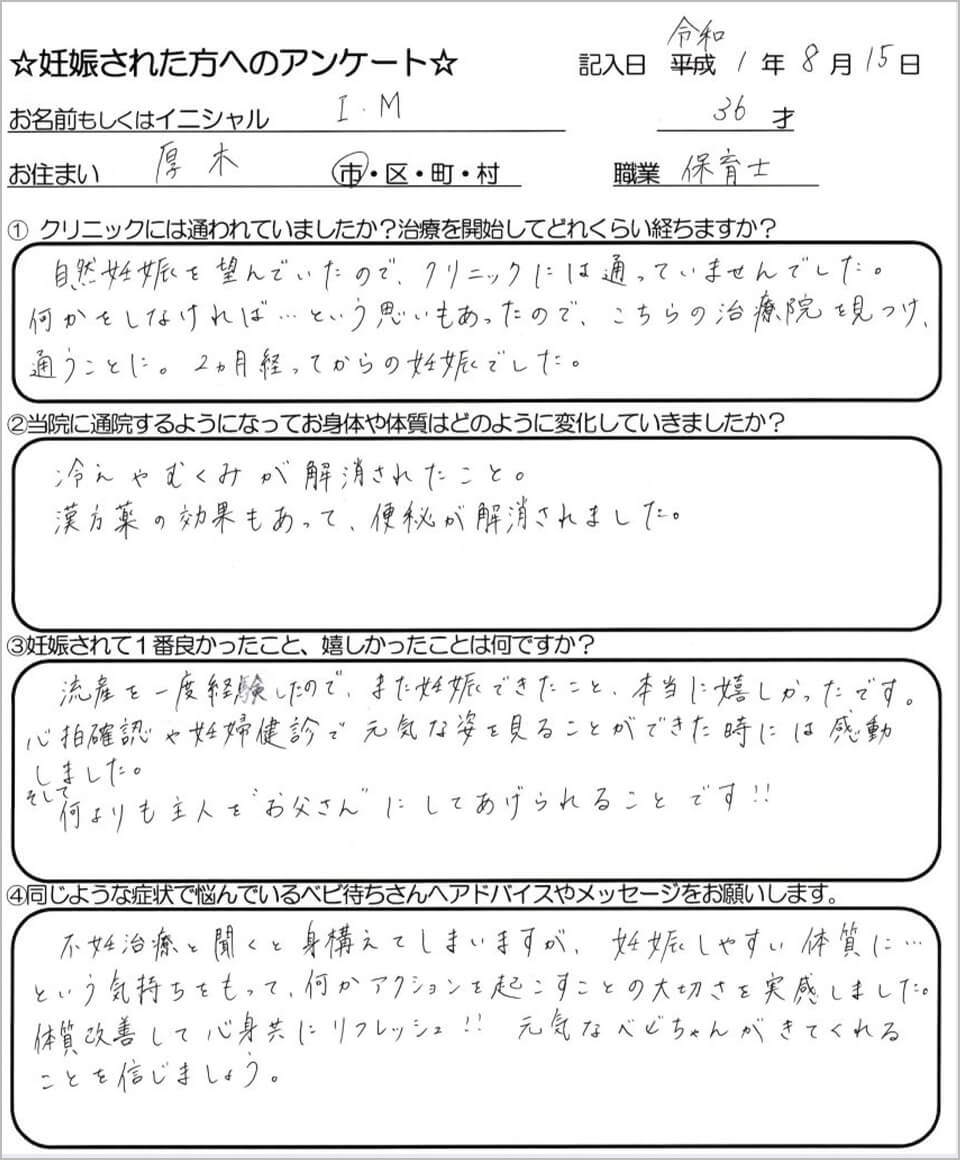 令和
☆妊娠された方へのアンケート☆ 記入日 平成 1 年 8 月 15 日
お名前もしくはイニシャル I.M 36 才
お住まい 厚木 市・区・町・村 職業 保育士
① クリニックには通われていましたか?治療を開始してどれくらい経ちますか?
自然妊娠を望んでいたので、クリニックには通っていませんでした。
何かをしなければ…という思いもあったので、こちらの治療院を見つけ、
通うことに。2ヵ月経ってからの妊娠でした。
②当院に通院するようになってお身体や体質はどのように変化していきましたか?
冷えやむくみが解消されたこと。
漢方薬の効果もあって、便秘が解消されました。
③妊娠されて1番良かったこと、嬉しかったことは何ですか?
流産を一度経験したので、また妊娠できたこと、本当に嬉しかったです。
心拍確認や妊婦健診で元気な姿を見ることができた時には感動
しました。
そして
何よりも主人を"お父さん"にしてあげられることです!!
④同じような症状で悩んでいるベビ待ちさんへアドバイスやメッセージをお願いします。
不妊治療と聞くと身構えてしまいますが、妊娠しやすい体質に…
という気持ちをもって、何かアクションを起こすことの大切さを実感しました。
体質改善して心身共にリフレッシュ!! 元気なベビちゃんがきてくれる
ことを信じましょう。